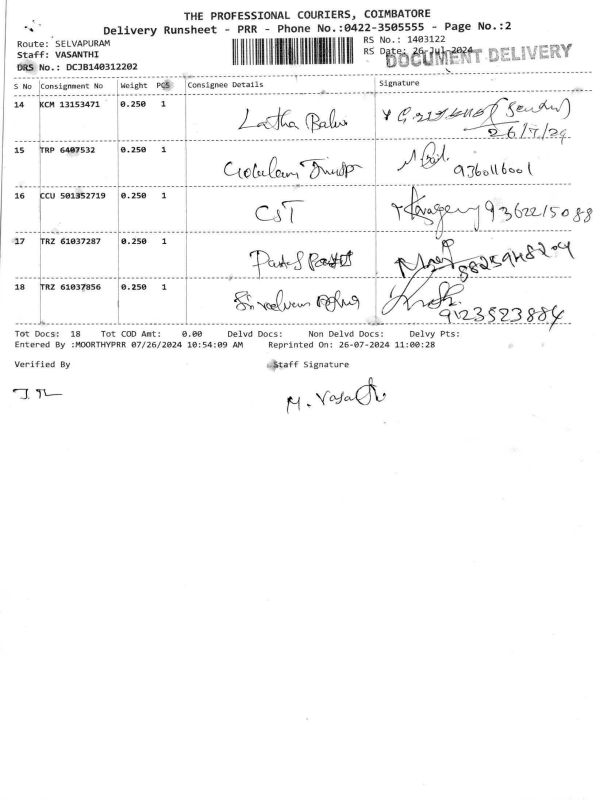 THE PROFESSIONAL COURIERS, COIMBATORE
Delivery Runsheet - PRR - Phone No.:0422-3505555 - Page No.:2
Route: SELVAPURAM
RS No.: 1403122
Staff: VASANTHI
RS Date: 26-Jul-2024
DOCUMENT DELIVERY
DRS No.: DCJB140312202
S No Consignment No Weight PCS Consignee Details Signature
14 KCM 13153471 0.250 1 Latha Balu
26/7/24
15 TRP 6407532 0.250 1
9360116001
16 CCU 501352719 0.250 1 CST 9362215088
17 TRZ 61037287 0.250 1 Patel
18 TRZ 61037856 0.250 1
9123523884
Tot Docs: 18 Tot COD Amt: 0.00 Delvd Docs: Non Delvd Docs: Delvy Pts:
Entered By :MOORTHYPRR 07/26/2024 10:54:09 AM Reprinted On: 26-07-2024 11:00:28
Verified By Staff Signature
M. Vasa